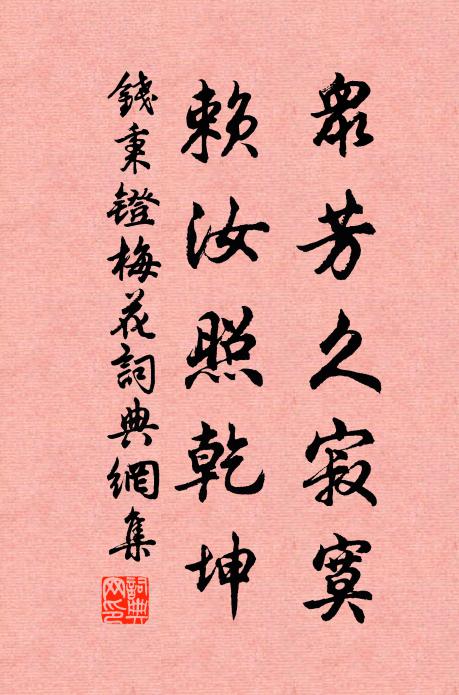 眾芳久寂寞
賴汝照乾坤
錢秉鐙梅花詞典網集
詞典網印